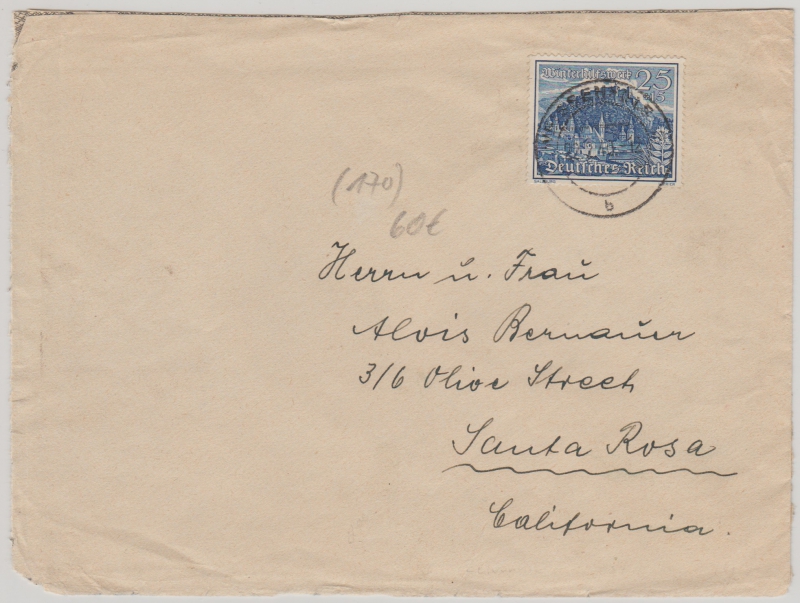 Winterhilfswerk 25
+15
Deutsches Reich
b
(170)
60€
Herrn u. Frau
Alois Bernauer
316 Olive Street
Santa Rosa
California.